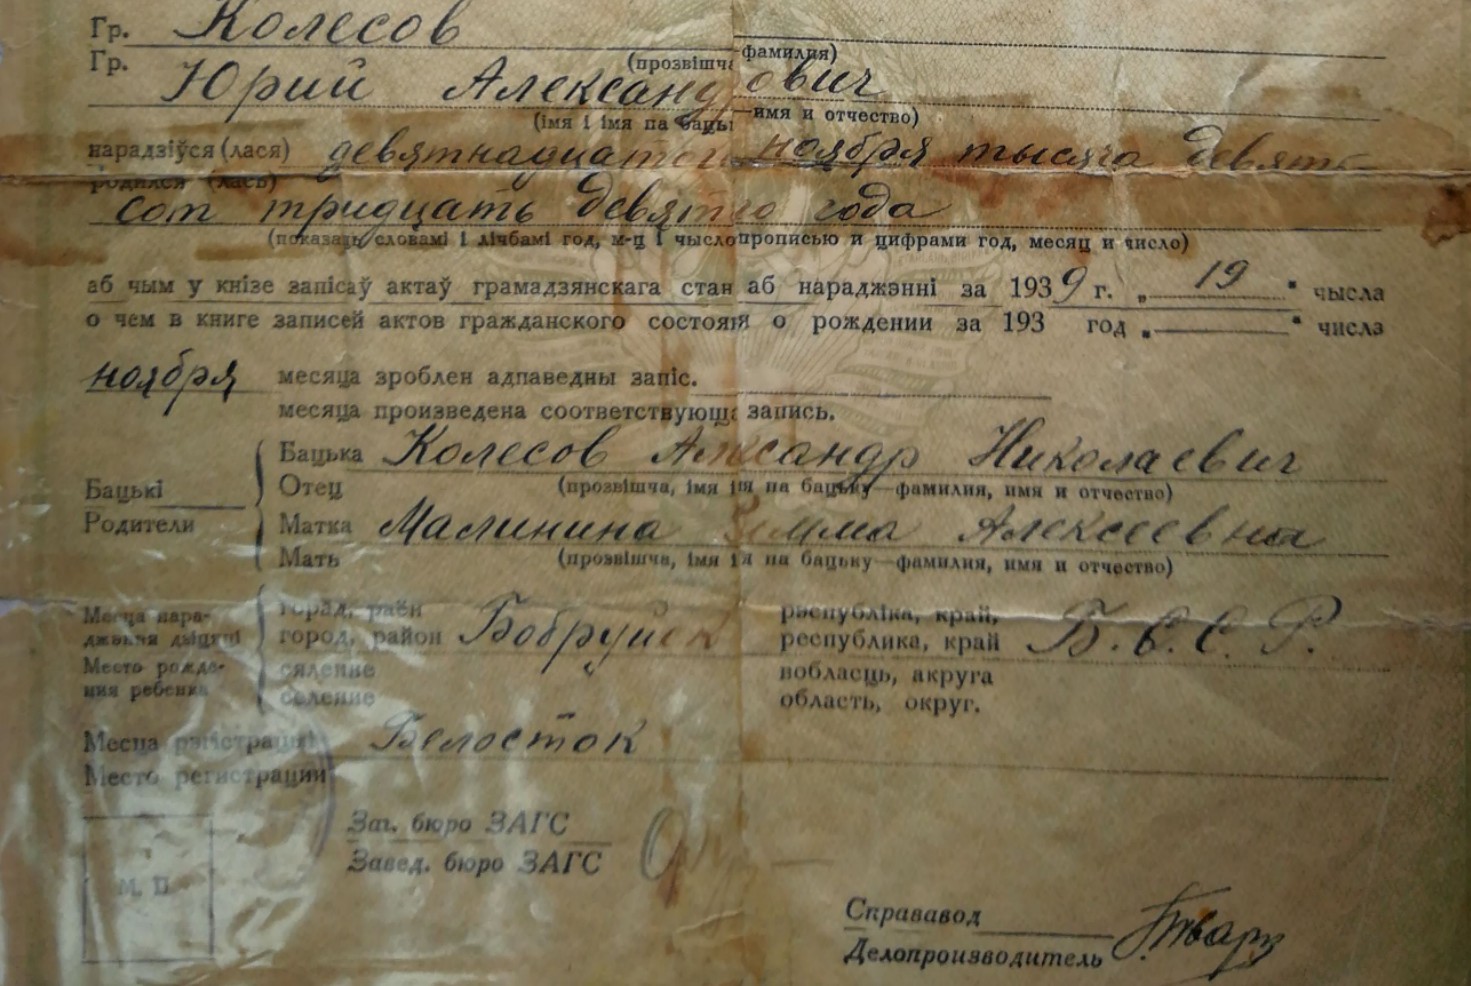 Гр. Колесов
(прозвішча фамилия)
Гр. Юрий Александрович
(імя і імя па бацьк — имя и отчество)
нарадзіўся (лася) девятнадцатого ноября тысяча девять
родился (лась)
сот тридцать девятго года
(паказаць словамі і лічбамі год, м-ц і число прописью и цифрами год, месяц и число)
аб чым у кнізе запісаў актаў грамадзянскага стан аб нараджэнні за 1939 г. „ 19 " чысла
о чем в книге записей актов гражданского состояя о рождении за 193 год „ " числа
ноября месяца зроблен адпаведны запіс.
месяца произведена соответствующа запись.
Бацька Колесов Александр Николаевич
Бацькі Отец (прозвішча, імя ія па бацьку—фамилия, имя и отчество)
Родители Матка Малинина Алексеевна
Мать (прозвішча, імя ія па бацьку—фамилия, имя и отчество)
Месца нара- горад, раён рэспубліка, край,
джэння дзіцяці город, район Бобруйск республика, край Б.С.С.Р.
Место рожде- сяленне вобласць, акруга
ния ребенка селение область, округ.
Месца рэгістрацыі Белосток
Место регистрации
Заг. бюро ЗАГС
Завед. бюро ЗАГС
М. П.
Справавод
Делопроизводитель